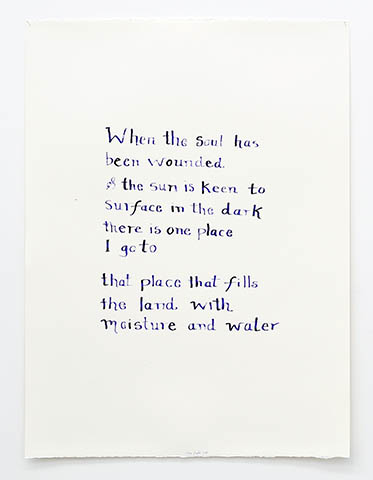 When the soul has
been wounded.
& the sun is keen to
surface in the dark
there is one place
I go to
that place that fills
the land. with
moisture and water